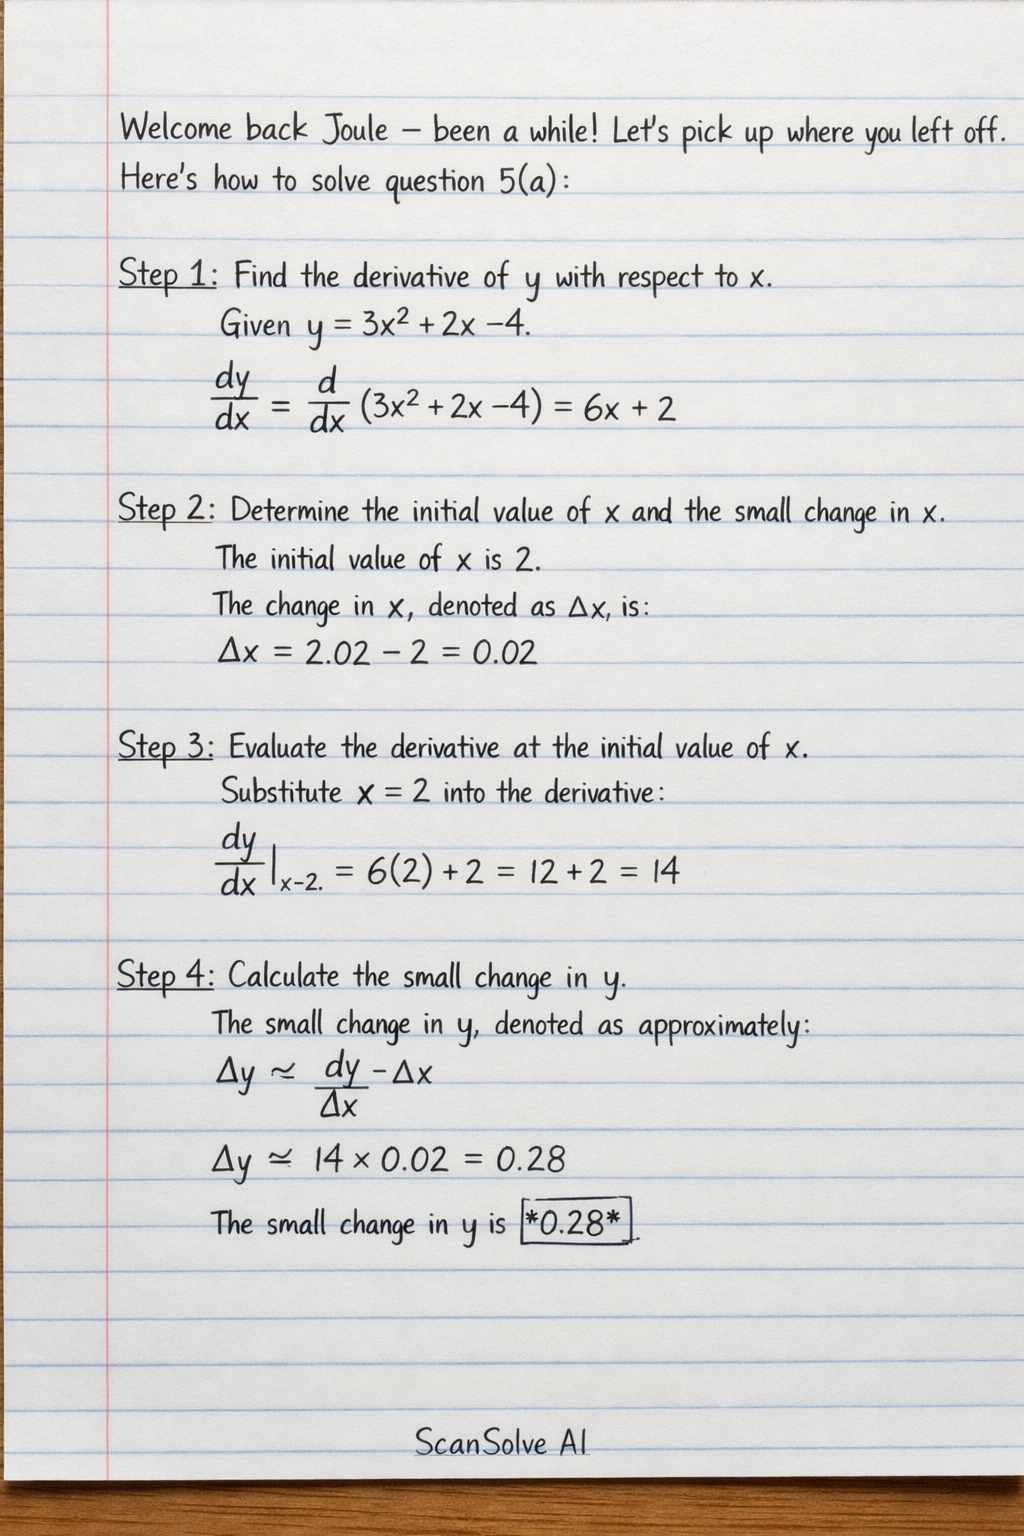 Welcome back Joule – been a while! Let's pick up where you left off.
Here's how to solve question 5(a):
Step 1: Find the derivative of y with respect to x.
Given y = 3x² + 2x – 4.
dy/dx = d/dx (3x² + 2x – 4) = 6x + 2
Step 2: Determine the initial value of x and the small change in x.
The initial value of x is 2.
The change in x, denoted as Δx, is:
Δx = 2.02 – 2 = 0.02
Step 3: Evaluate the derivative at the initial value of x.
Substitute x = 2 into the derivative:
dy/dx |x–2. = 6(2) + 2 = 12 + 2 = 14
Step 4: Calculate the small change in y.
The small change in y, denoted as approximately:
Δy ≈ dy/Δx – Δx
Δy ≃ 14 × 0.02 = 0.28
The small change in y is *0.28*
ScanSolve AI